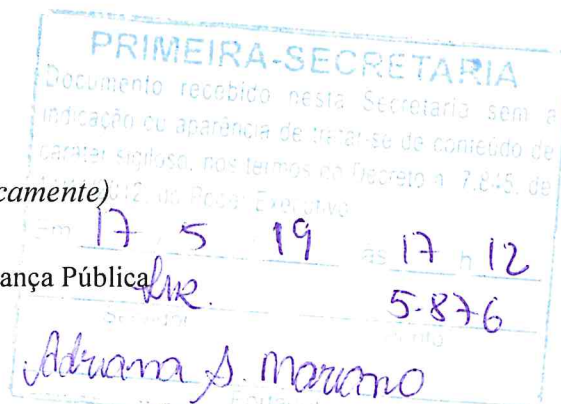 PRIMEIRA-SECRETARIA
Documento recebido nesta Secretaria sem a
indicação ou aparência de tratar-se de conteúdo de
caráter sigiloso, nos termos do Decreto n. 7.845, de
2012, do Poder Executivo
camente)
Em 17 5 19 às 17 h 12
ança Pública
5.876
Servidor Ponto
Adriana S. Mariano
Portador